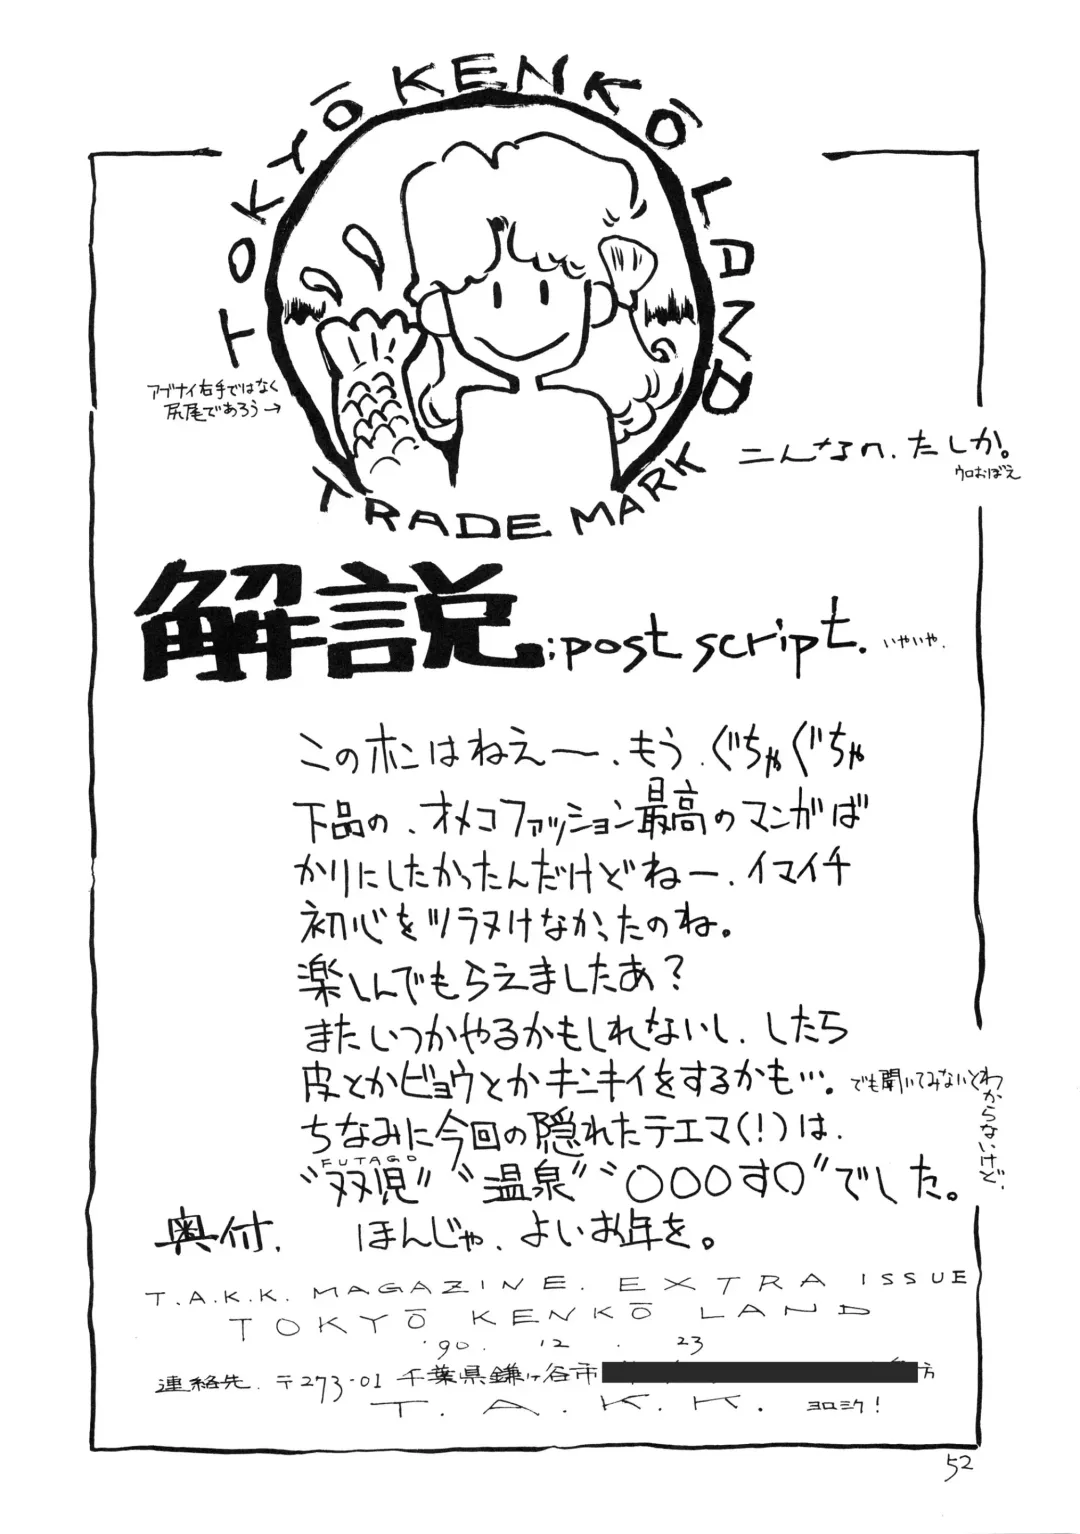 TOKYŌ KENKŌ LAND
TRADE MARK
アブナイ右手ではなく
尻尾であろう→
こんなの、たしか。
ウロおぼえ
解説;post script.
いやいや.
このホンはねえ〜、もう、ぐちゃぐちゃ
下品の、オメコファッション最高のマンガば
かりにしたかったんだけどねー、イマイチ
初心をツラヌけなかったのね。
楽しんでもらえましたあ?
またいつかやるかもしれないし、したら
皮とかビョウとかキンキイをするかも….
でも聞いてみないとわからないけど.
ちなみに今回の隠れたテエマ(!)は、
FUTAGO
"双児" "温泉" "○○○す○"でした。
ほんじゃ、よいお年を。
奥付.
T.A.K.K. MAGAZINE. EXTRA ISSUE
TOKYŌ KENKŌ LAND
'90. 12. 23
連絡先. 〒273-01 千葉県鎌ヶ谷市 方
T.A.K.K. ヨロシク!
52